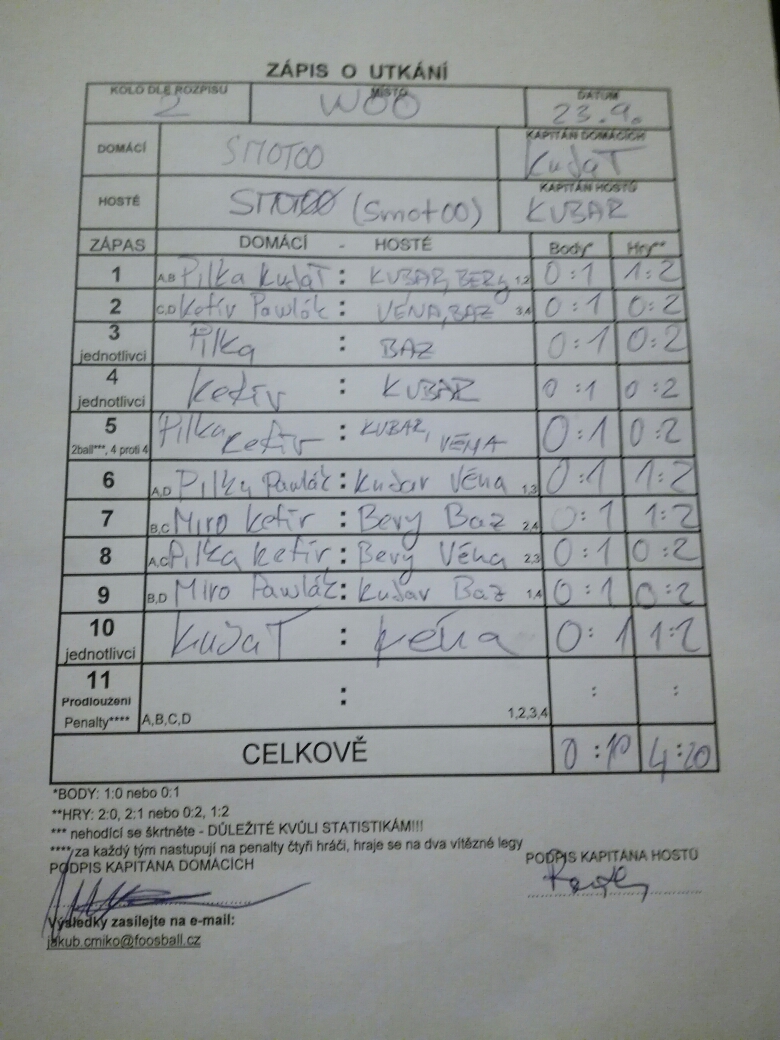 ZÁPIS O UTKÁNÍ
KOLO DLE ROZPISU MÍSTO DATUM
2 WOO 23.9.
DOMÁCÍ SMOTOO KAPITÁN DOMÁCÍCH
KudaT
HOSTÉ (Smotoo) KAPITÁN HOSTŮ
KUBAR
ZÁPAS DOMÁCÍ - HOSTÉ Body* Hry**
1 A,B Pilka KudaT : KUBAR, BERY 1,2 0:1 1:2
2 C,D Kefír Pawlák : VÉNA, BAZ 3,4 0:1 0:2
3 jednotlivci Pilka : BAZ 0:1 0:2
4 jednotlivci Kefír : KUBAR 0:1 0:2
5 2ball***, 4 proti 4 Pilka Kefír : KUBAR, VÉNA 0:1 0:2
6 A,D Pilka Pawlák : Kubar Véna 1,3 0:1 1:2
7 B,C Miro Kefír : Bery Baz 2,4 0:1 1:2
8 A,C Pilka Kefír : Bery Véna 2,3 0:1 0:2
9 B,D Miro Pawlák : Kubar Baz 1,4 0:1 0:2
10 jednotlivci KudaT : Véna 0:1 1:2
11 Prodloužení : : :
Penalty**** A,B,C,D 1,2,3,4
CELKOVĚ 0:10 4:20
*BODY: 1:0 nebo 0:1
**HRY: 2:0, 2:1 nebo 0:2, 1:2
*** nehodící se škrtněte - DŮLEŽITÉ KVŮLI STATISTIKÁM!!!
**** za každý tým nastupují na penalty čtyři hráči, hraje se na dva vítězné legy
PODPIS KAPITÁNA DOMÁCÍCH PODPIS KAPITÁNA HOSTŮ
Výsledky zasílejte na e-mail:
jakub.cmiko@foosball.cz